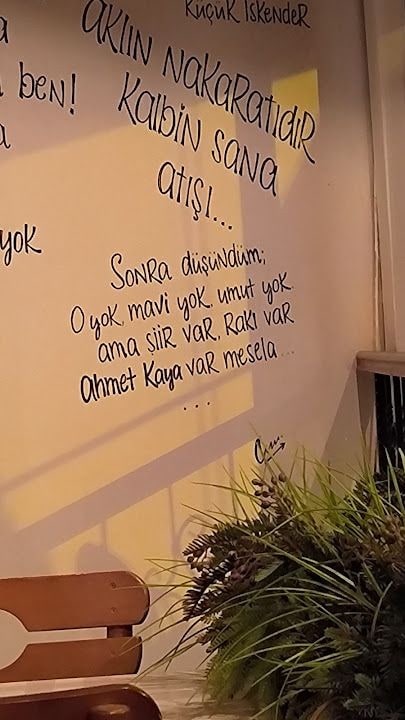 Küçük İskender
aklın nakaratıdır
kalbin sana
atışı...
ben!
yok
Sonra düşündüm;
O yok, mavi yok, umut yok.
ama şiir var, Rakı var
Ahmet Kaya var mesela...
...